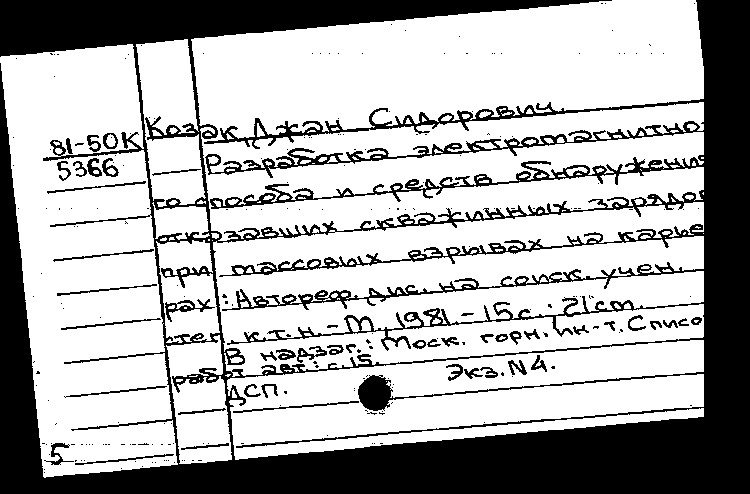 81-50К
5366
Козак, Джан Сидорович.
Разработка электромагнитно-
го способа и средств обнаружения
отказавших скважинных зарядов
при массовых взрывах на карье-
рах: Автореф. дис. на соиск. учен.
степ. к.т.н. - М., 1981. - 15 с.; 21 см.
В надзаг.: Моск. горн. ин-т. Списо
работ авт.: с. 15.
ДСП.
Экз. N4.
5